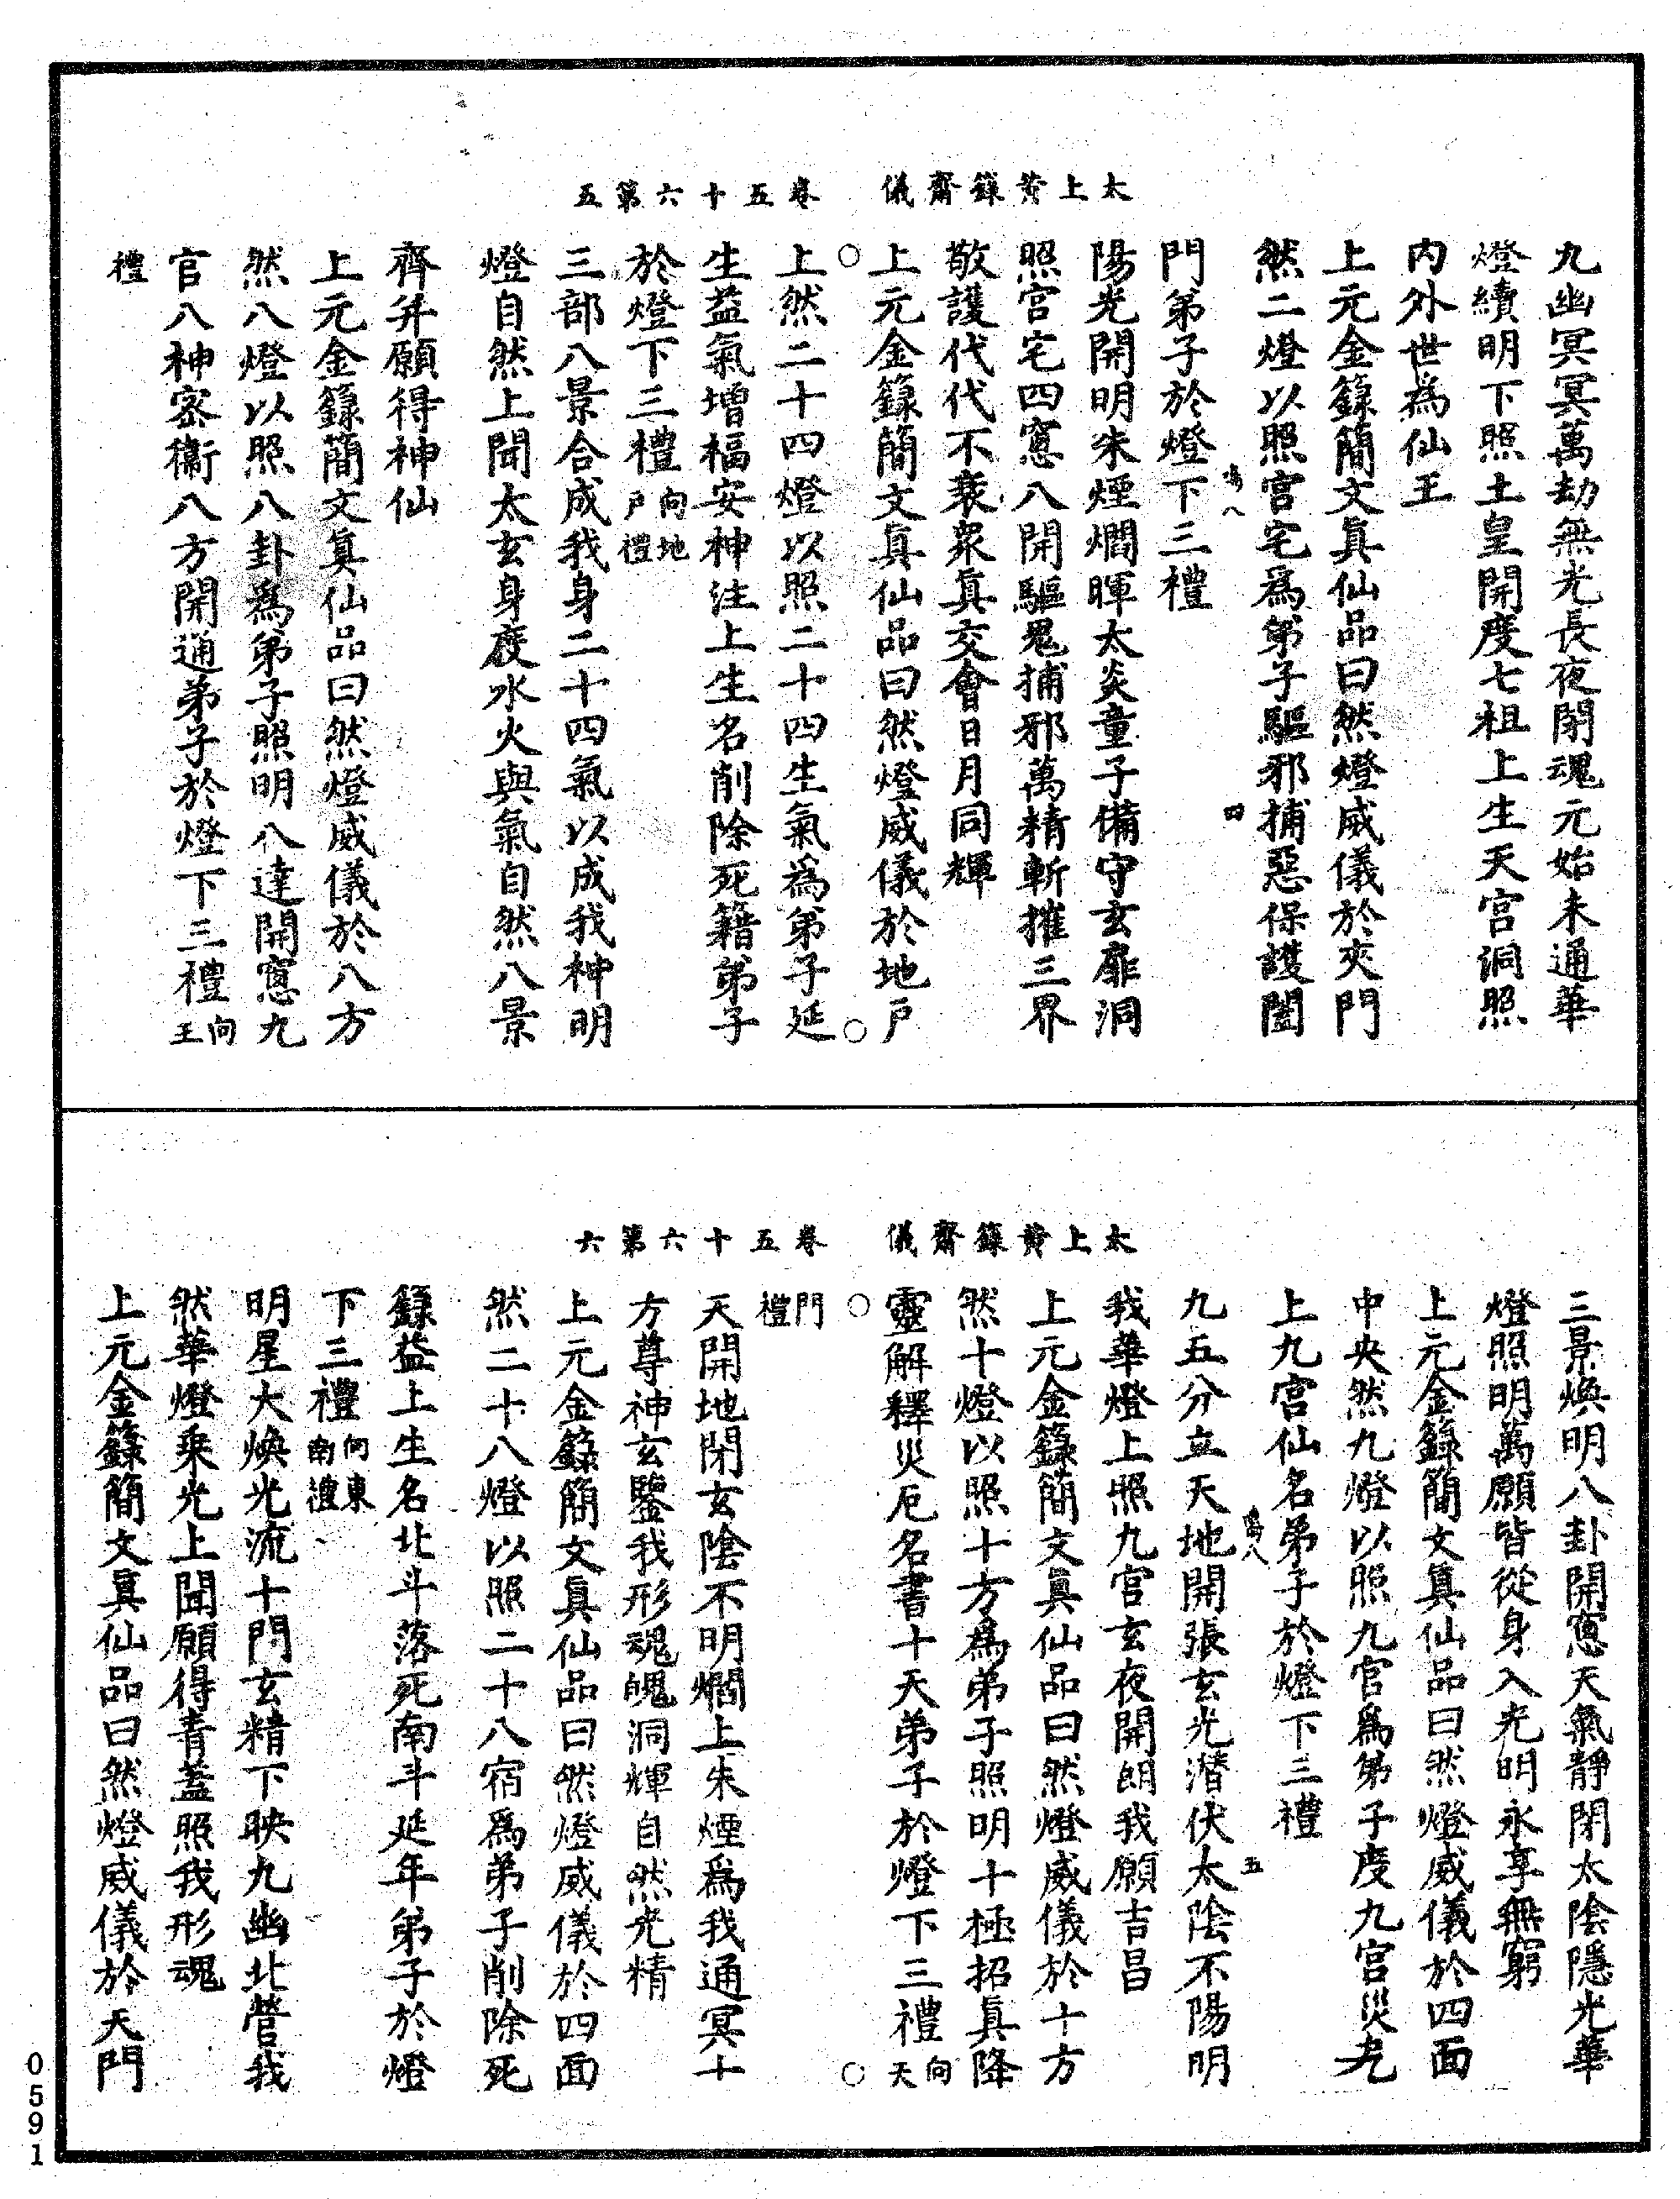 太上黃籙齋儀　卷五十六第五
九幽冥冥萬劫無光長夜閉魂元始未通華
燈續明下照土皇開度七祖上生天宮洞照
內外世為仙王
上元金籙簡文真仙品曰然燈威儀於夾門
然二燈以照宮宅爲弟子驅邪捕惡保護闔
四
門弟子於燈下三禮
陽光開明朱煙爓暉太炎童子備守玄扉洞
照宮宅四窓八開驅鬼捕邪萬精斬摧三界
敬護代代不衰衆真交會日月同輝
上元金籙簡文真仙品曰然燈威儀於地戶
上然二十四燈以照二十四生氣爲弟子延
生益氣增福安神注上生名削除死籍弟子
於燈下三禮向地戶禮
三部八景合成我身二十四氣以成我神明
燈自然上聞太玄身度水火與氣自然八景
齊并願得神仙
上元金籙簡文真仙品曰然燈威儀於八方
然八燈以照八卦爲弟子照明八達開窓九
官八神密衞八方開通弟子於燈下三禮向王
禮
太上黃籙齋儀　卷五十六第六
三景煥明八卦開窓天氣靜閉太陰隱光華
燈照明萬願皆從身入光明永享無窮
上元金籙簡文真仙品曰然燈威儀於四面
中央然九燈以照九宮爲弟子度九宮災厄
上九宮仙名弟子於燈下三禮
五
九五分立天地開張玄光潛伏太陰不陽明
我華燈上照九宮玄夜開朗我願吉昌
上元金籙簡文真仙品曰然燈威儀於十方
然十燈以照十方爲弟子照明十極招真降
靈解釋災厄名書十天弟子於燈下三禮向天
門禮
天開地閉玄陰不明爓上朱煙爲我通冥十
方尊神玄鑒我形魂魄洞輝自然光精
上元金籙簡文真仙品曰然燈威儀於四面
然二十八燈以照二十八宿爲弟子削除死
籙益上生名北斗落死南斗延年弟子於燈
下三禮向東南禮
明星大煥光流十門玄精下映九幽北營我
然華燈乘光上聞願得青蓋照我形魂
上元金籙簡文真仙品曰然燈威儀於天門
0591